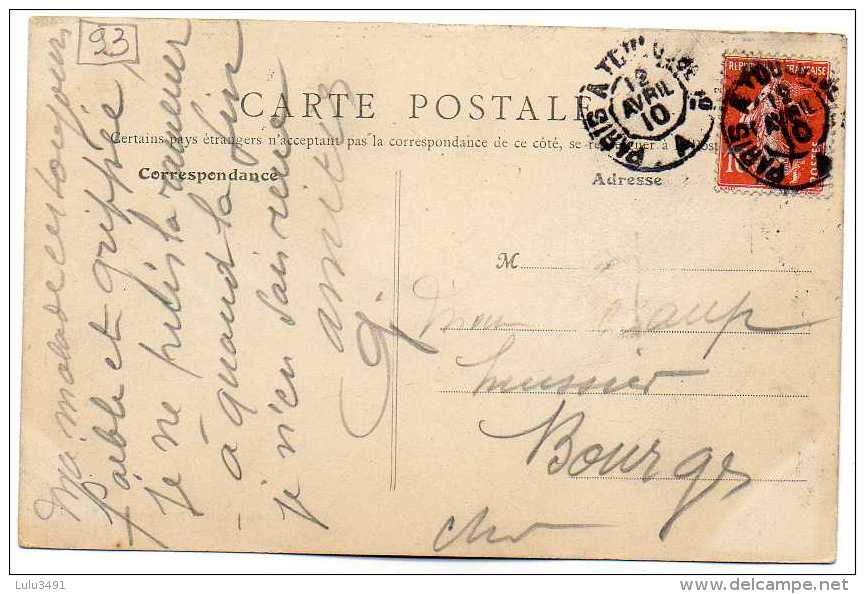 93
CARTE POSTALE
Certains pays étrangers n'acceptant pas la correspondance de ce côté, se renseigner à la Poste
Correspondance
Adresse
PARIS A
12
AVRIL
10
RÉPUBLIQUE FRANÇAISE
10
PARIS A TOU
12
AVRIL
10
Ma malade est toujours
faible et grippée,
je ne puis la ramener
- à quand la fin
je n'en sais rien
amitiés
G.
M
huissier
Bourges
Cher
Lulu3491
delcampe.net